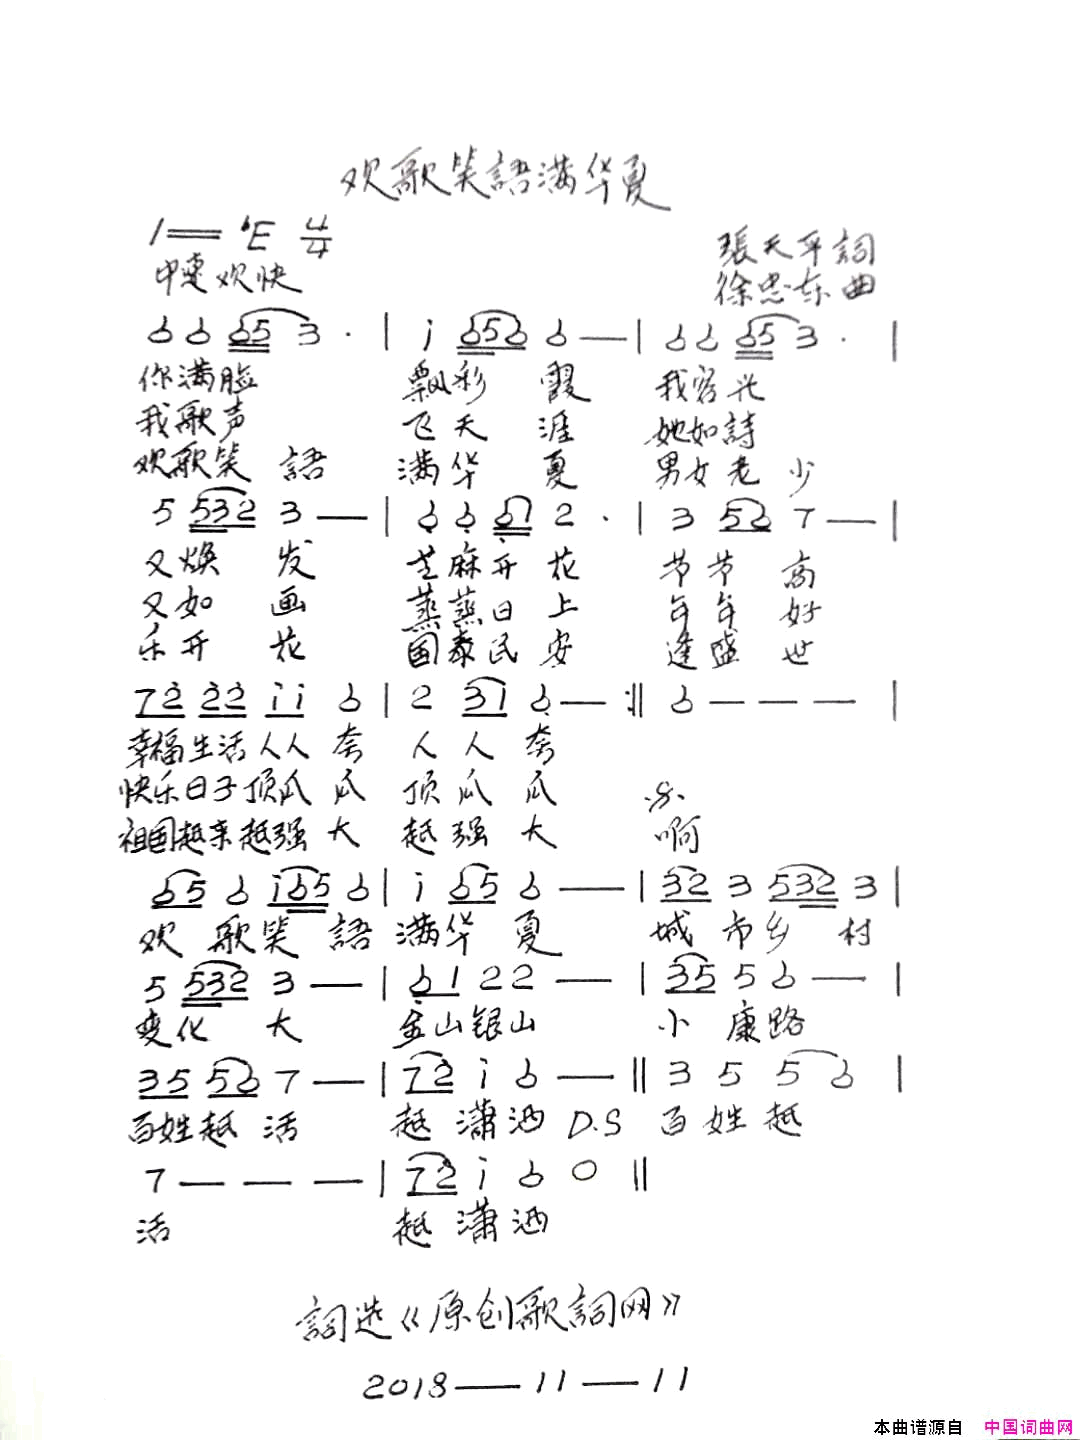 欢歌笑語满华夏
1== ♭E 4/4
張天平詞
中速欢快
徐忠东曲
6 6 65 3 · | i 656 6 — | 6 6 65 3 · |
你满脸 飘彩 霞 我容光
我歌声 飞天 涯 她如詩
欢歌笑 語 满华 夏 男女老 少
5 532 3 — | 6 6 61 2 · | 3 56 7 — |
又焕 发 芝麻开 花 节节 高
又如 画 蒸蒸日 上 年年 好
乐开 花 国泰民 安 逢盛 世
72 22 ii 6 | 2 31 6 — :‖ 6 — — — |
幸福生活人人 夸 人 人 夸
快乐日子顶瓜 瓜 顶 瓜 瓜
祖国越来越强 大 越 强 大 啊
65 6 i65 6 | i 65 6 — | 32 3 532 3 |
欢 歌笑 語 满华 夏 城 市乡 村
5 532 3 — | 61 22 — | 35 5 6 — |
变化 大 金山银山 小 康路
35 56 7 — | 72 i 6 — ‖ 3 5 5 6 |
百姓越 活 越 潇洒 D.S 百 姓 越
7 — — — | 72 i 6 0 ‖
活 越 潇 洒
詞选《原创歌詞网》
2018——11——11
本曲谱源自 中国词曲网